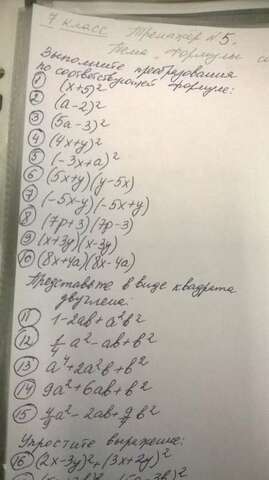 7 класс Тренажер №5.
Тема "Формулы
Выполните преобразования
по соответствующей формуле:
1 (x+5)²
2 (a-2)²
3 (5a-3)²
4 (4x+y)²
5 (-3x+a)²
6 (5x+y)(y-5x)
7 (-5x-y)(-5x+y)
8 (7p+3)(7p-3)
9 (x+3y)(x-3y)
10 (8x+4a)(8x-4a)
Представьте в виде квадрата
двучлена:
11 1-2ab+a²b²
12 ¼a²-ab+b²
13 a⁴+2a²b+b²
14 9a²+6ab+b²
15 a²-2ab+b²
Упростите выражение:
16 (2x-3y)²+(3x+2y)²